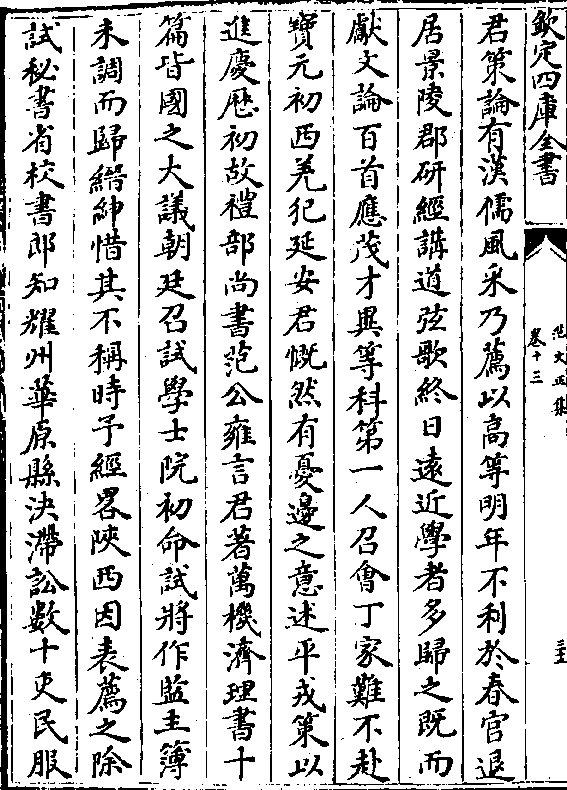 欽定四庫全書
范文正集
卷十三
三
君策論有漢儒風采乃薦以高等明年不利於春官退
居景陵郡研經講道弦歌終日遠近學者多歸之既而
獻文論百首應茂才異等科第一人召會丁家難不赴
寶元初西羌犯延安君慨然有憂邊之意述平戎策以
進慶歷初故禮部尚書范公雍言君著萬機濟理書十
篇皆國之大議朝廷召試學士院初命試將作監主簿
未調而歸縉紳惜其不稱時予經畧陝西因表薦之除
試秘書省校書郎知耀州華原縣決滯訟數十吏民服